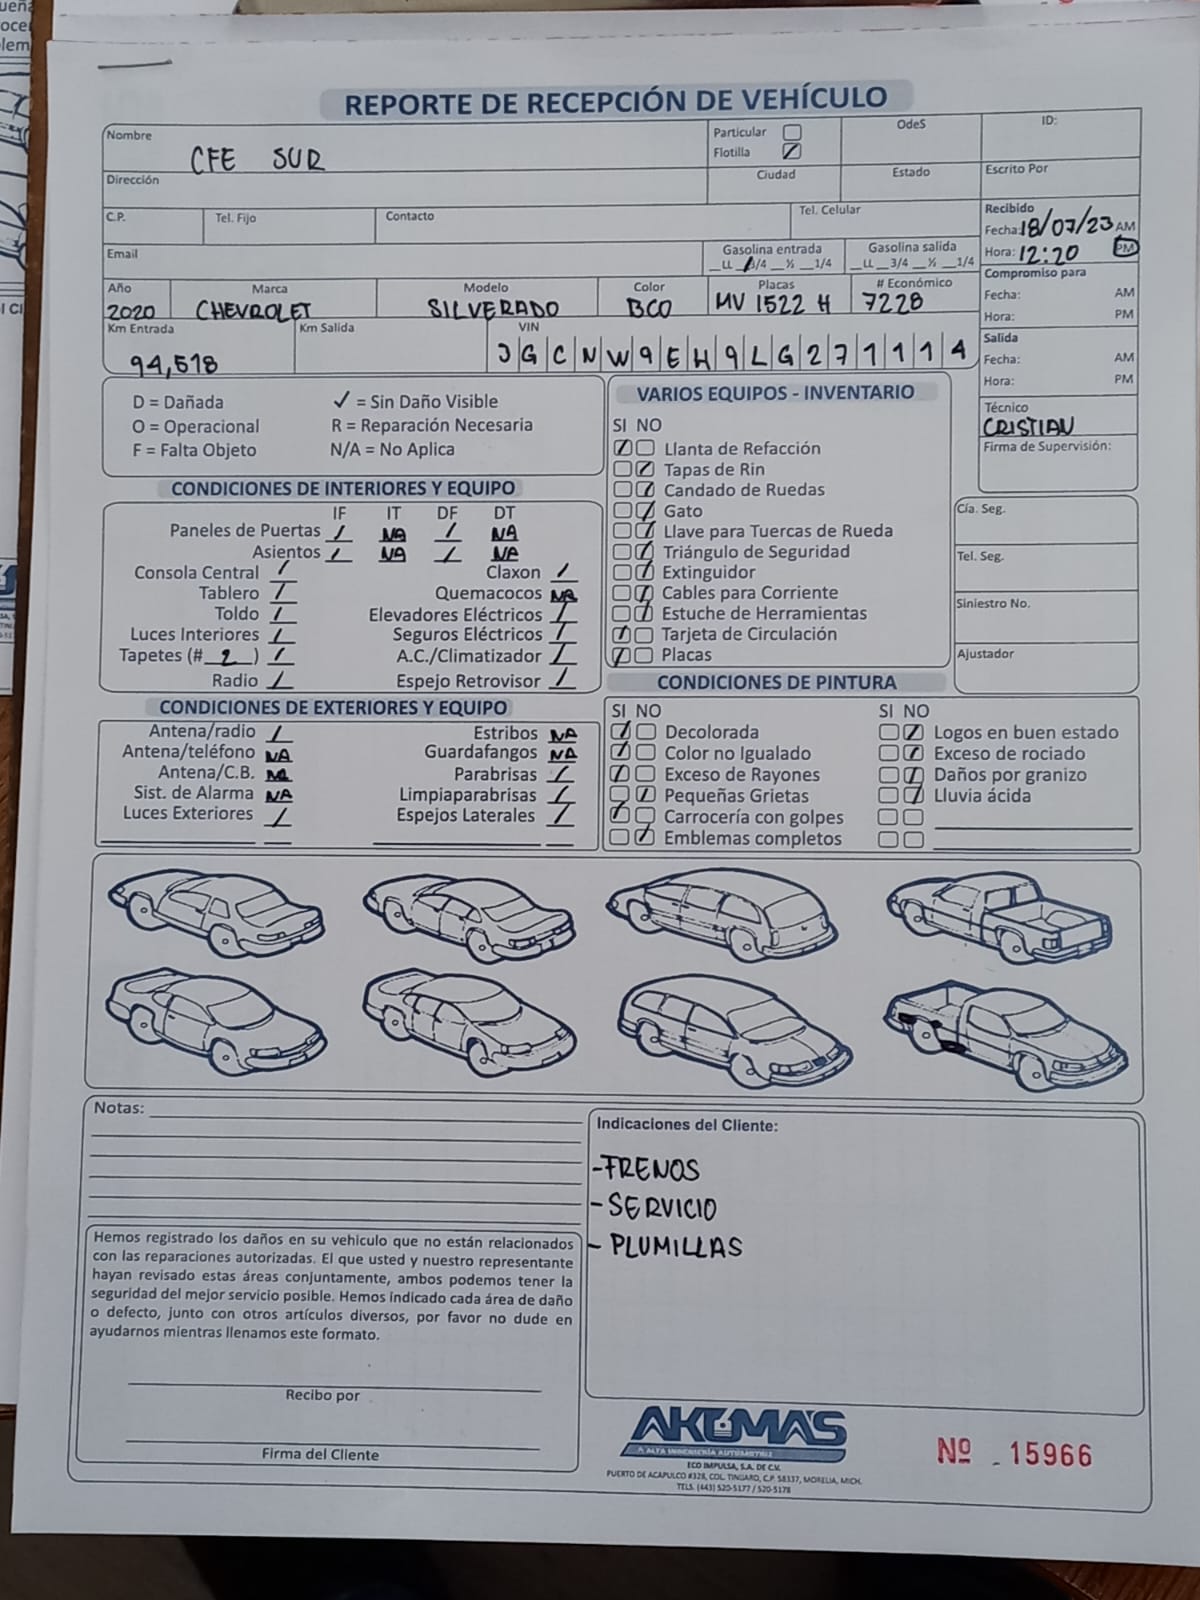 REPORTE DE RECEPCIÓN DE VEHÍCULO
Nombre
CFE SUR
Particular
Flotilla
OdeS
ID:
Dirección
Ciudad
Estado
Escrito Por
C.P.
Tel. Fijo
Contacto
Tel. Celular
Recibido
Fecha: 18/07/23 AM
Hora: 12:20 PM
Email
Gasolina entrada
__LL __3/4 __½ __1/4
Gasolina salida
__LL __3/4 __½ __1/4
Compromiso para
Fecha: AM
Hora: PM
Año
2020
Marca
CHEVROLET
Modelo
SILVERADO
Color
BCO
Placas
MV 1522 H
# Económico
7228
Km Entrada
94,518
Km Salida
VIN
3GCNW9EH9LG271114
Salida
Fecha: AM
Hora: PM
Técnico
CRISTIAN
Firma de Supervisión:
D = Dañada
✓ = Sin Daño Visible
O = Operacional
R = Reparación Necesaria
F = Falta Objeto
N/A = No Aplica
CONDICIONES DE INTERIORES Y EQUIPO
IF IT DF DT
Paneles de Puertas / NA / NA
Asientos / NA / NA
Consola Central /
Claxon /
Tablero /
Quemacocos NA
Toldo /
Elevadores Eléctricos /
Luces Interiores /
Seguros Eléctricos /
Tapetes (# 2 ) /
A.C./Climatizador /
Radio /
Espejo Retrovisor /
CONDICIONES DE EXTERIORES Y EQUIPO
Antena/radio /
Estribos NA
Antena/teléfono NA
Guardafangos NA
Antena/C.B. NA
Parabrisas /
Sist. de Alarma NA
Limpiaparabrisas /
Luces Exteriores /
Espejos Laterales /
VARIOS EQUIPOS - INVENTARIO
SI NO
Llanta de Refacción
Tapas de Rin
Candado de Ruedas
Gato
Llave para Tuercas de Rueda
Triángulo de Seguridad
Extinguidor
Cables para Corriente
Estuche de Herramientas
Tarjeta de Circulación
Placas
Cía. Seg.
Tel. Seg.
Siniestro No.
Ajustador
CONDICIONES DE PINTURA
SI NO
Decolorada
Color no Igualado
Exceso de Rayones
Pequeñas Grietas
Carrocería con golpes
Emblemas completos
SI NO
Logos en buen estado
Exceso de rociado
Daños por granizo
Lluvia ácida
Notas:
Indicaciones del Cliente:
-FRENOS
-SERVICIO
- PLUMILLAS
Hemos registrado los daños en su vehiculo que no están relacionados
con las reparaciones autorizadas. El que usted y nuestro representante
hayan revisado estas áreas conjuntamente, ambos podemos tener la
seguridad del mejor servicio posible. Hemos indicado cada área de daño
o defecto, junto con otros artículos diversos, por favor no dude en
ayudarnos mientras llenamos este formato.
Recibo por
Firma del Cliente
AKUMA'S
A ALTA INGENIERÍA AUTOMOTRIZ
ECO IMPULSA, S.A. DE C.V.
PUERTO DE ACAPULCO #328, COL. TINIJARO, C.P. 58337, MORELIA, MICH.
TELS. (443) 520-5177 / 520-5178
Nº 15966